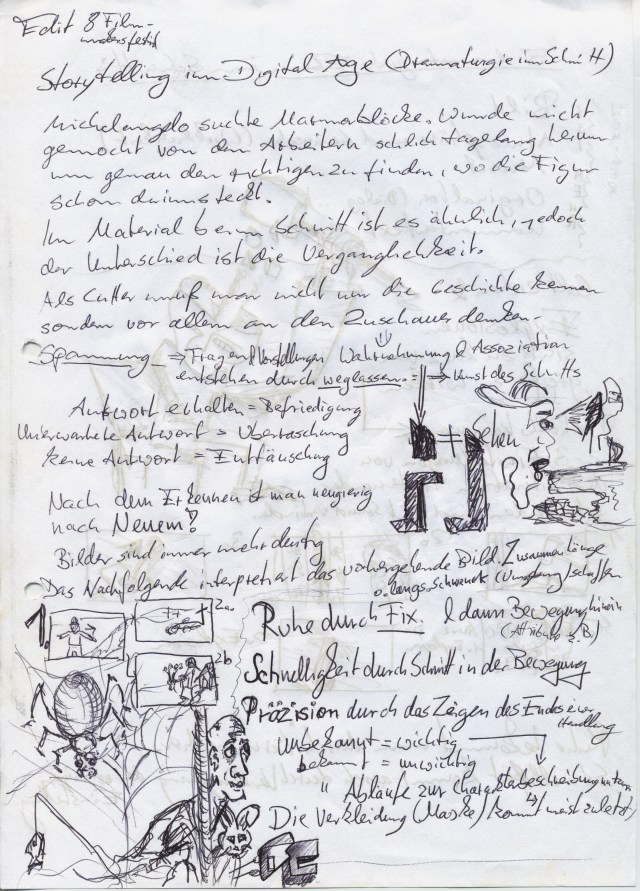 Edit 8 Film-
Storytelling im Digital Age (Dramaturgie im Schnitt)
Michelangelo suchte Marmorblöcke. Wurde nicht
gemocht von den Arbeitern schlich tagelang herum
um genau den richtigen zu finden, wo die Figur
schon drinnsteckt.
Im Material beim Schnitt ist es ähnlich, jedoch
der Unterschied ist die Vergänglichkeit.
Als Cutter muß man nicht nur die Geschichte kennen
sondern vor allem an den Zuschauer denken.
Spannung ⇒ Fragen & Vorstellungen Wahrnehmung & Assoziation
entstehen durch weglassen. = ⇒ Kunst des Schnitts
Antwort erhalten = Befriedigung
Unterwartete Antwort = Überraschung
keine Antwort = Enttäuschung
≠ Sehen
Nach dem Erkennen ist man neugierig
nach Neuem!
Bilder sind immer mehrdeutig
Das Nachfolgende interpretiert das vorhergehende Bild. Zusammenhänge
o. langs. Schwenk (Umgebung) schaffen
1.
2a
2b
Ruhe durch Fix. & dann Bewegung hinein
(Attribute z.B)
Schnelligkeit durch Schnitt in der Bewegung
Präzision durch das Zeigen des Endes einer
Handlung
Unbekannt = wichtig
bekannt = unwichtig
" Abläufe zur Charakterbeschreibung nutzen
Die Verkleidung (Maske) kommt meist zuletzt